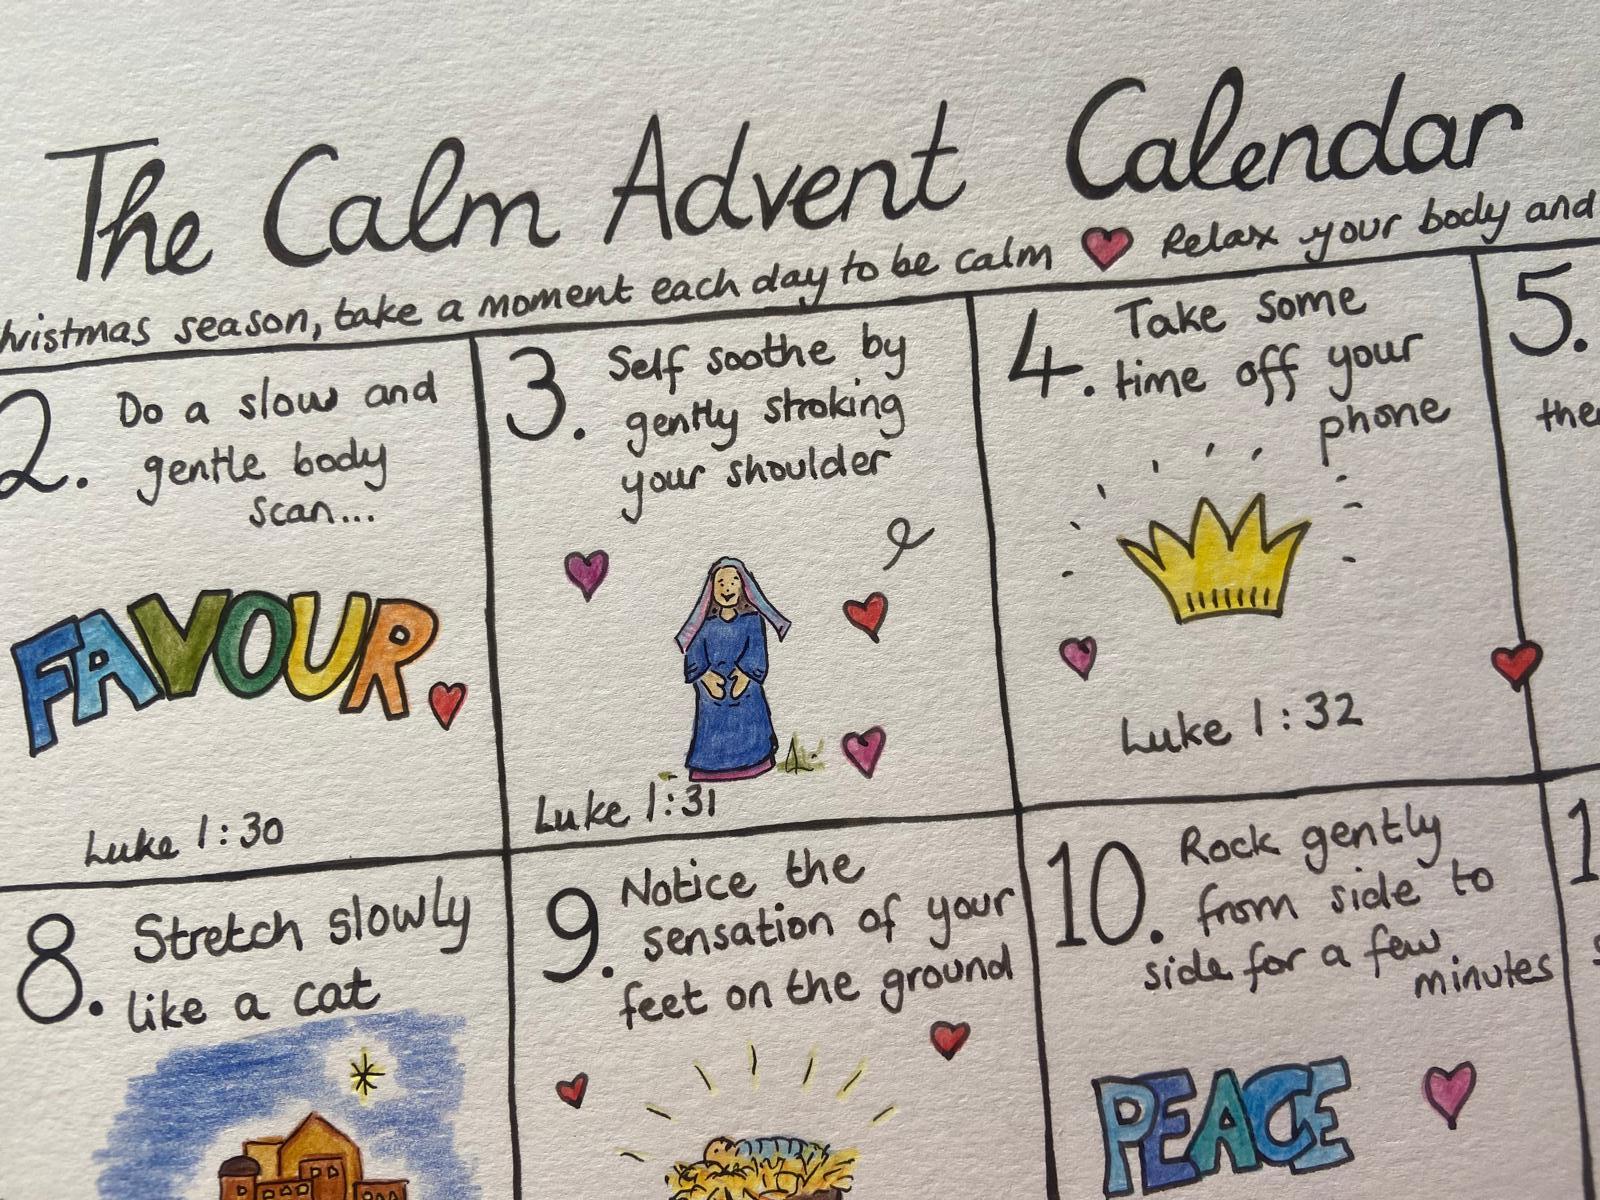 The Calm Advent Calendar
season, take a moment each day to be calm Relax your body and
2. Do a slow and
gentle body
scan...
FAVOUR
Luke 1:30
3. Self soothe by
gently stroking
your shoulder
Luke 1:31
4. Take some
time off your
phone
Luke 1:32
5.
8. Stretch slowly
like a cat
9. Notice the
sensation of your
feet on the ground
10. Rock gently
from side to
side for a few
minutes
PEACE